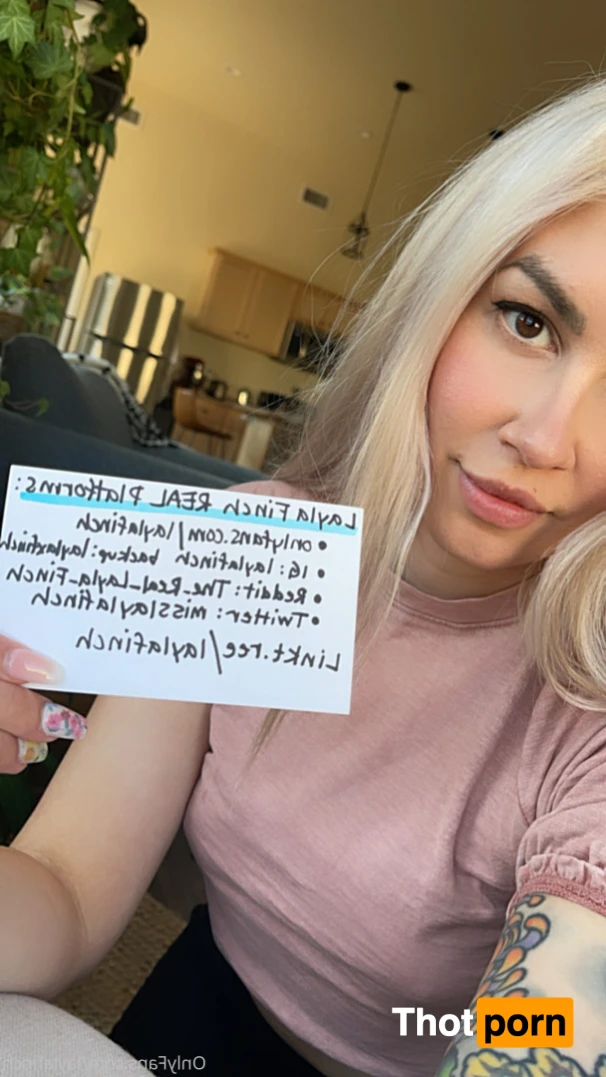 Layla Finch REAL Platforms:
• onlyfans.com/laylafinch
• IG: laylafinch backup: laylaxfinch
• Reddit: The_Real_Layla_Finch
• Twitter: misslaylafinch
Linkt.ree/laylafinch
Thotporn